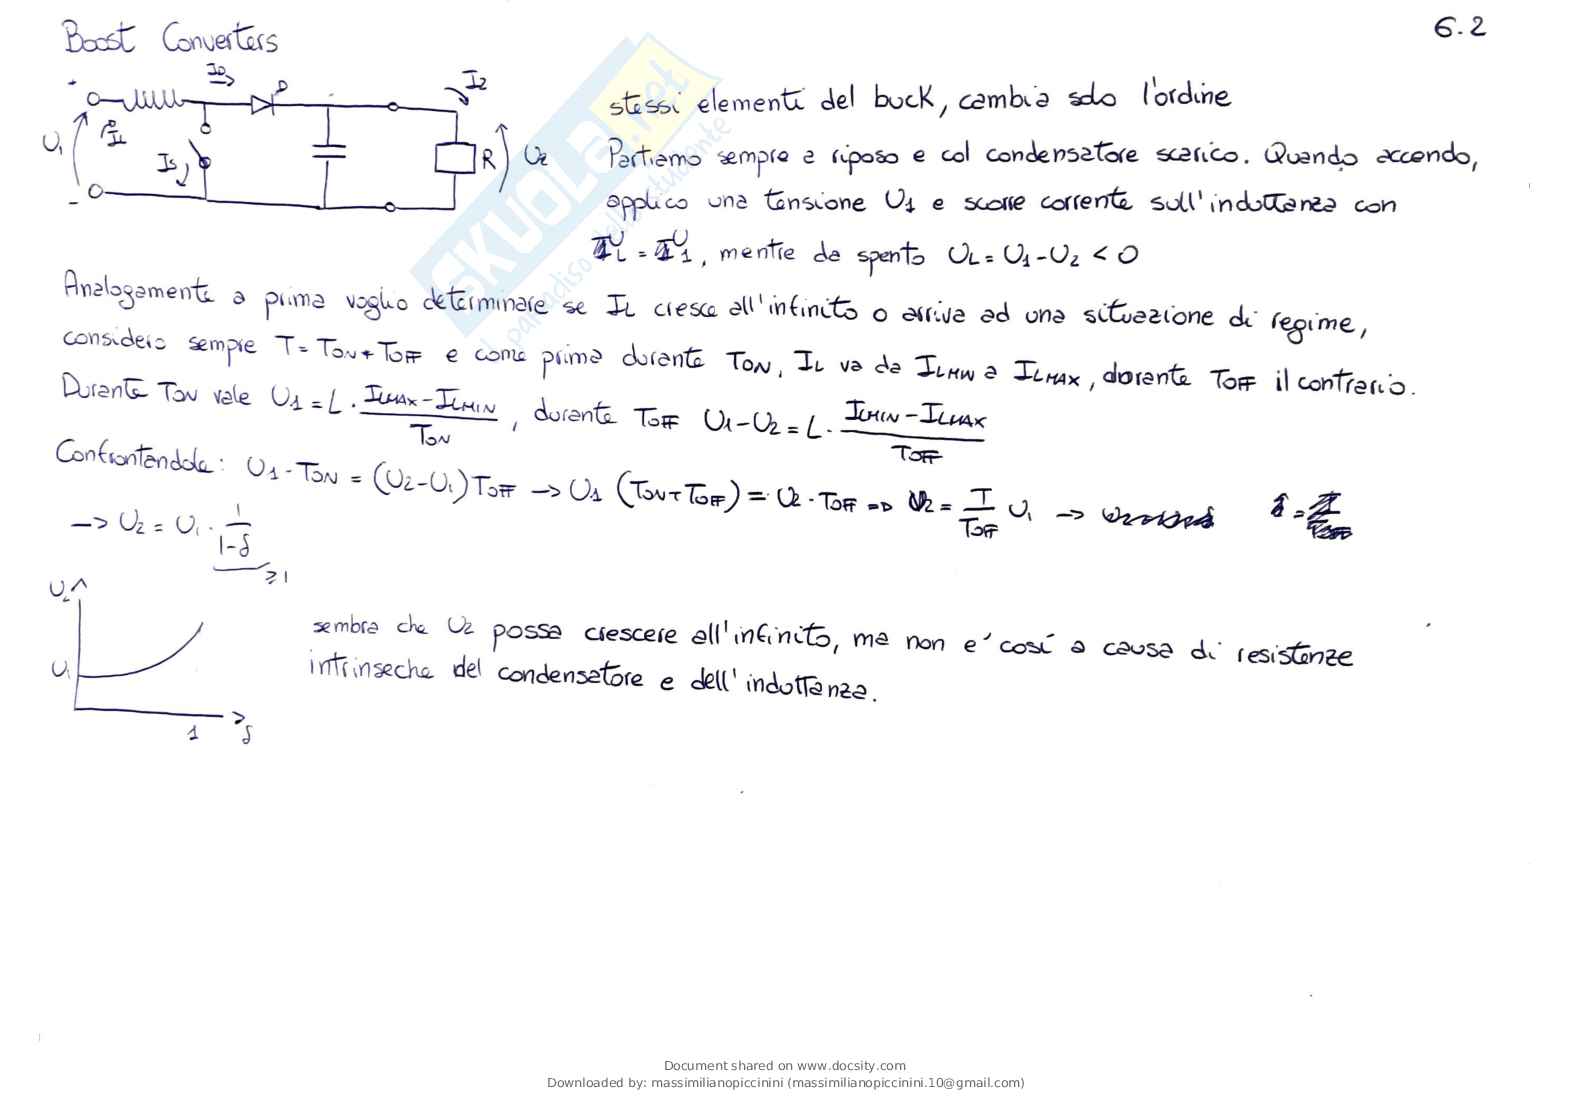 Boost Converters
6.2
+
ID
D
I2
U1
IL
IS
R
U2
-
stessi elementi del buck, cambia solo l'ordine
Partiamo sempre a riposo e col condensatore scarico. Quando accendo,
applico una tensione U1 e scorre corrente sull'induttanza con
UL = U1, mentre da spento UL = U1-U2 < 0
Analogamente a prima voglio determinare se IL cresce all'infinito o arriva ad una situazione di regime,
considero sempre T = TON + TOFF e come prima durante TON, IL va da ILMIN a ILMAX, durante TOFF il contrario.
Durante TON vale U1 = L · (ILMAX - ILMIN)/TON, durante TOFF U1-U2 = L · (ILMIN - ILMAX)/TOFF
Confrontandole: U1 · TON = (U2-U1) TOFF -> U1 (TON + TOFF) = U2 · TOFF => U2 = T/TOFF U1 ->
-> U2 = U1 · 1/(1-δ)
≥1
U2
U1
1
δ
sembra che U2 possa crescere all'infinito, ma non e' così a causa di resistenze
intrinseche del condensatore e dell'induttanza.
SKUOLA.net
il paradiso dello studente
Document shared on www.docsity.com
Downloaded by: massimilianopiccinini (massimilianopiccinini.10@gmail.com)